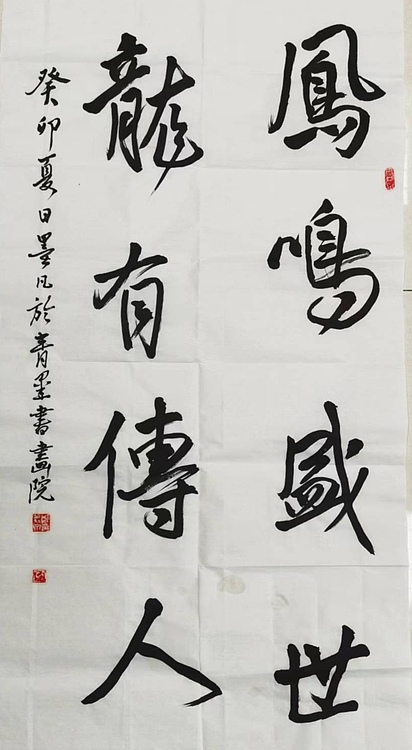 鳳鳴盛世
龍有傳人
癸卯夏日墨凡於青墨書畫院